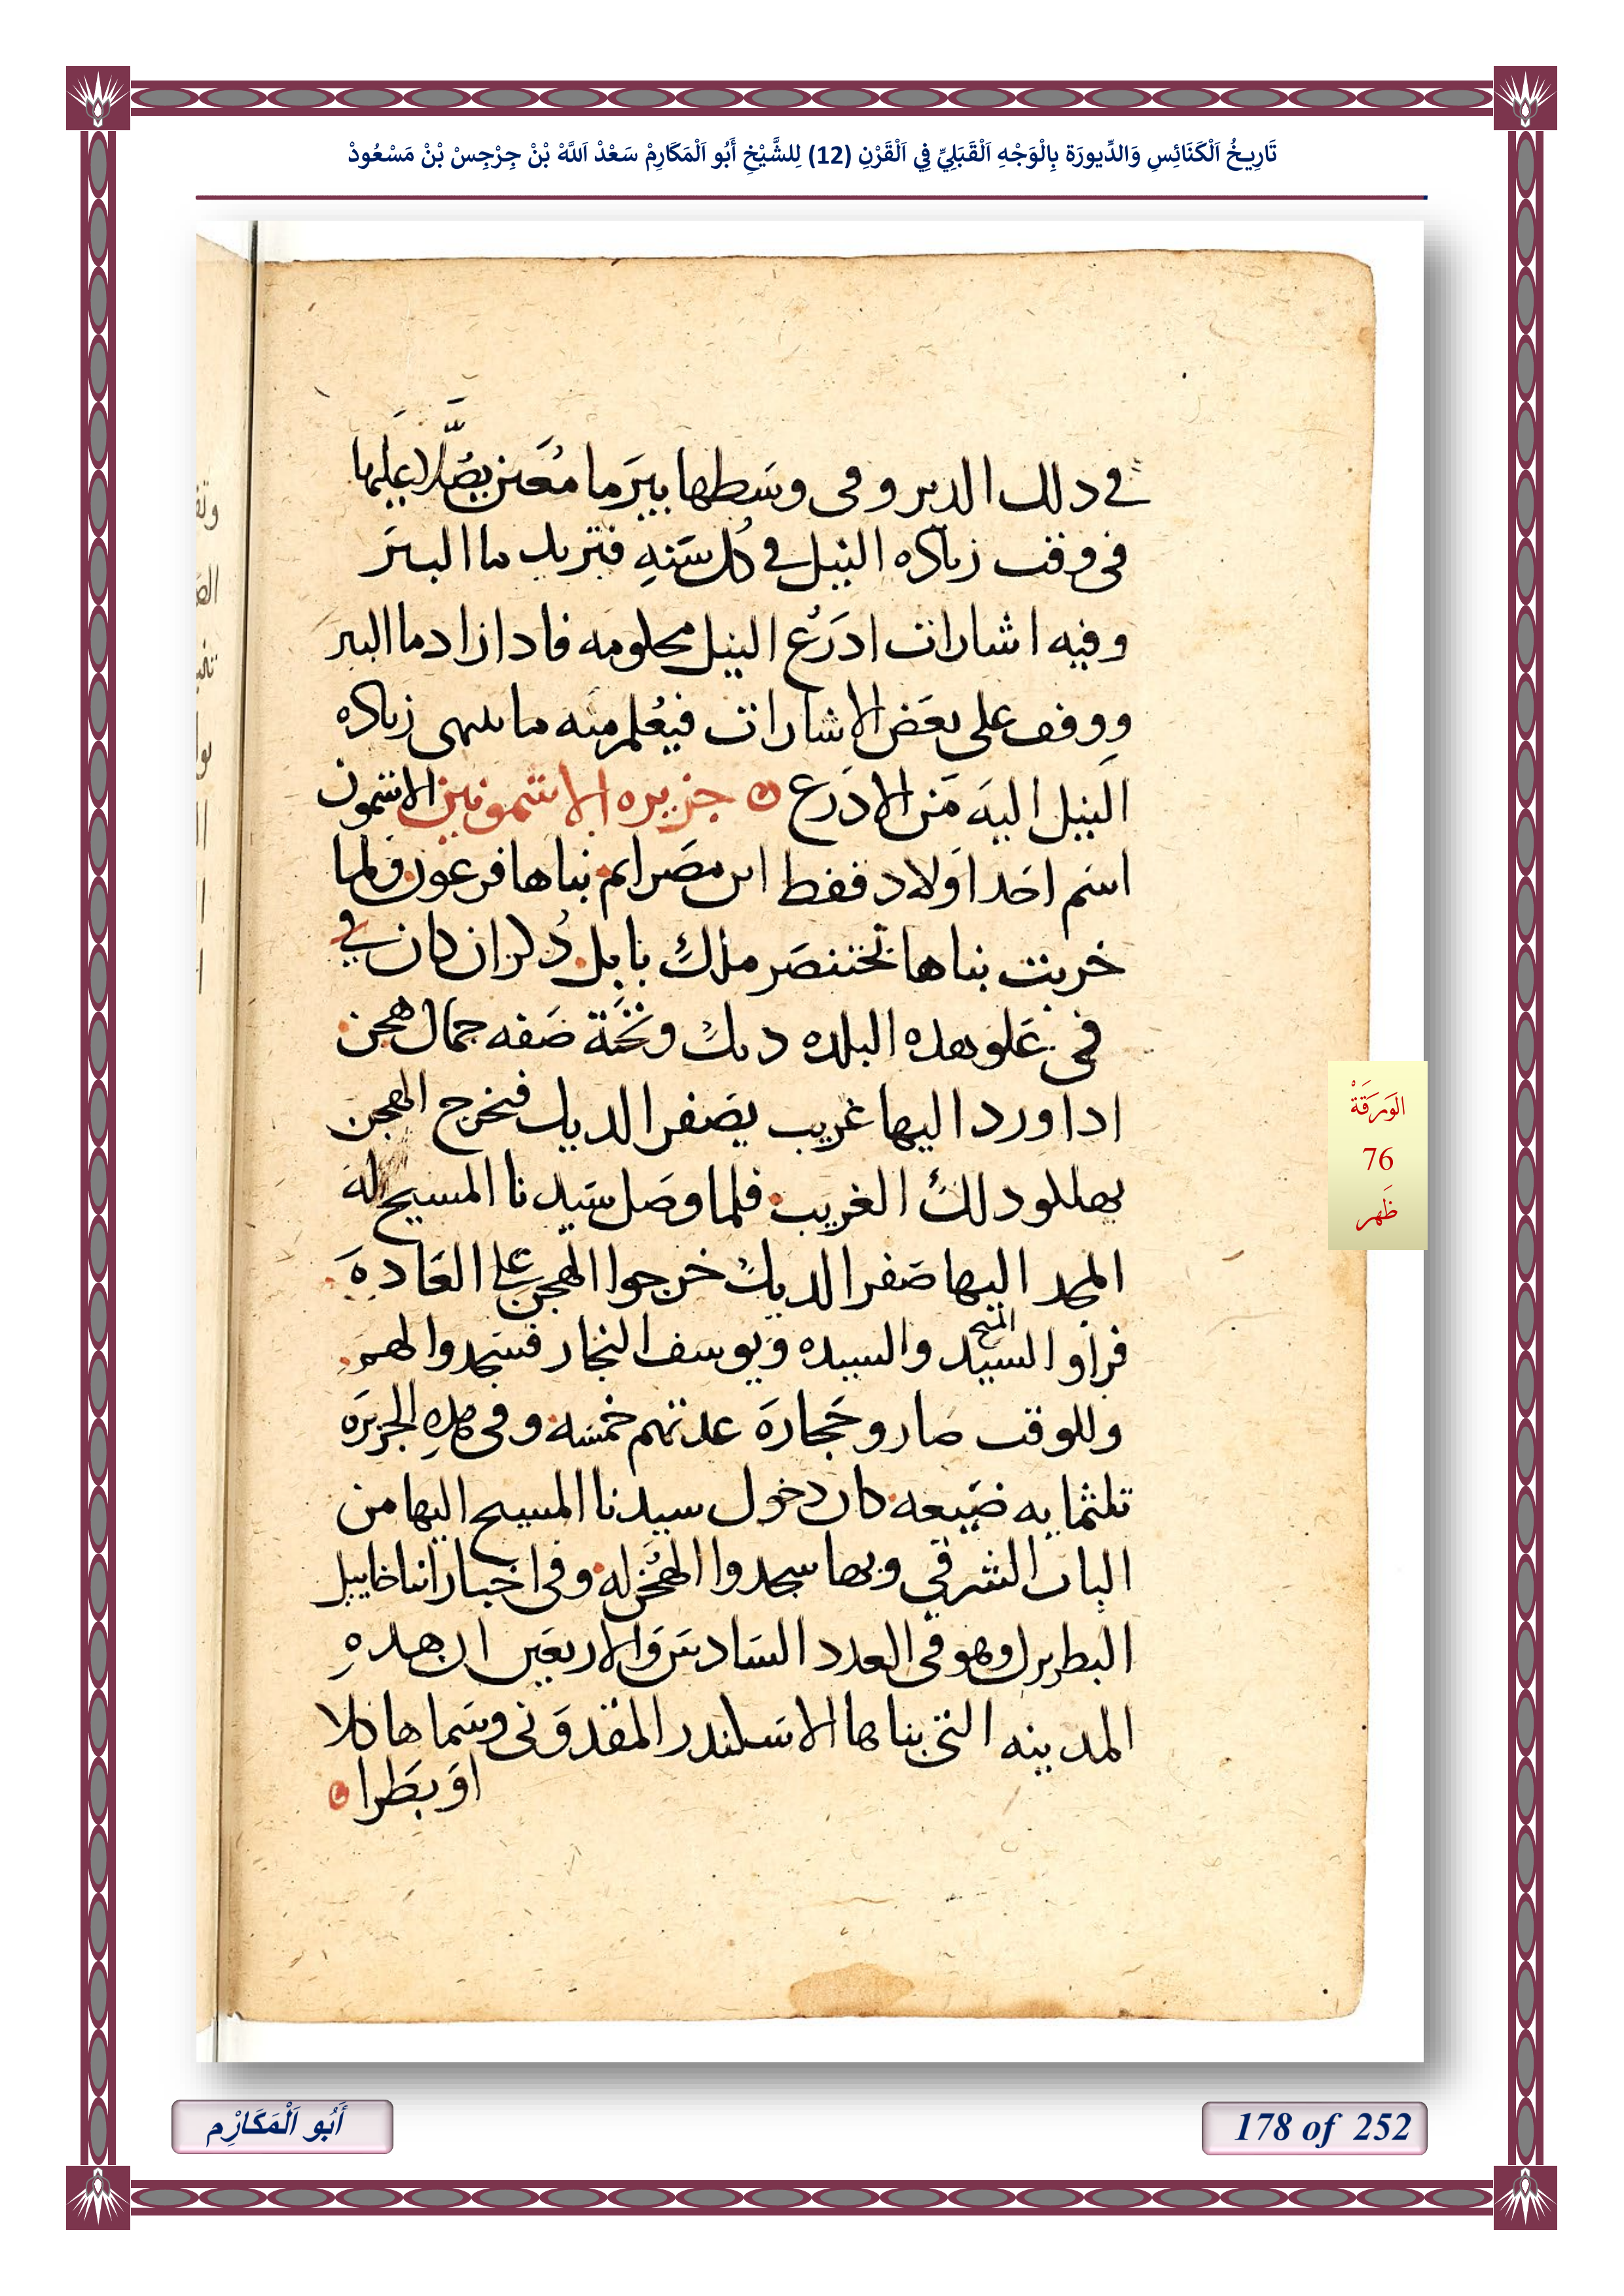 تَارِيخُ اَلْكَنَائِسِ وَالدِّيورَة بِالْوَجْهِ اَلْقَبَلِيِّ فِي اَلْقَرْنِ (12) لِلشَّيْخِ أَبُو اَلْمَكَارِمْ سَعْدْ اَللَّهْ بْنْ جِرْجِسْ بْنْ مَسْعُودْ
في دلك الدير وفى وسَطها بيرَ ما مُعَين يصَّلا عليها
فى وقت زياده النيل في كل سَنهِ فتزيد ما البئرَ
وفيه اشارات ادرَع النيل معلومه فادا زاد ما البير
ووقف على بعَض الاشارات فيُعلم منه ما ينتهى زياده
النيل اليهَ مَن الادرَع جزيره الاشمونين الاشمون
اسَم احَد اَولاد قفط ابن مصَرايم بناها فرعون ولما
خربت بناها بختنصَر ملك بابل دُكر ان كان في
فى عَلو هده البلده ديك وتحَتة صَفه جمال هجن
ادا ورد اليها غريب يصَفر الديك فتخرج الهجن
يهللو دلك الغريب فلما وصَل سَيدنا المسيح لهَ
المجد اليها صَفر الديك خرجوا الهجن على العَادهَ
فراو السَيد المسيح والسيده وَيوسف النجار فسَجدوا لهم
وللوقت صَارو حَجارهَ عدتهم خمسَه وفى هدهِ الجزيرَه
تلثمايه ضيَعه كان دخول سيدنا المسيح اليها من
الباب الشرقي وبها سجدوا الهُجَن له وفى اخبار انبا خاييل
البطريرك وهو فى العدد السَادسَ وَالاربعَين ان هدهِ
المدينه التى بناها الاسَكندر المقدوَنى وسَماها كلا
اوَبطَرا
الوَرَقَةْ
76
ظَهر
أَبُو اَلْمَكَارْم
178 of 252